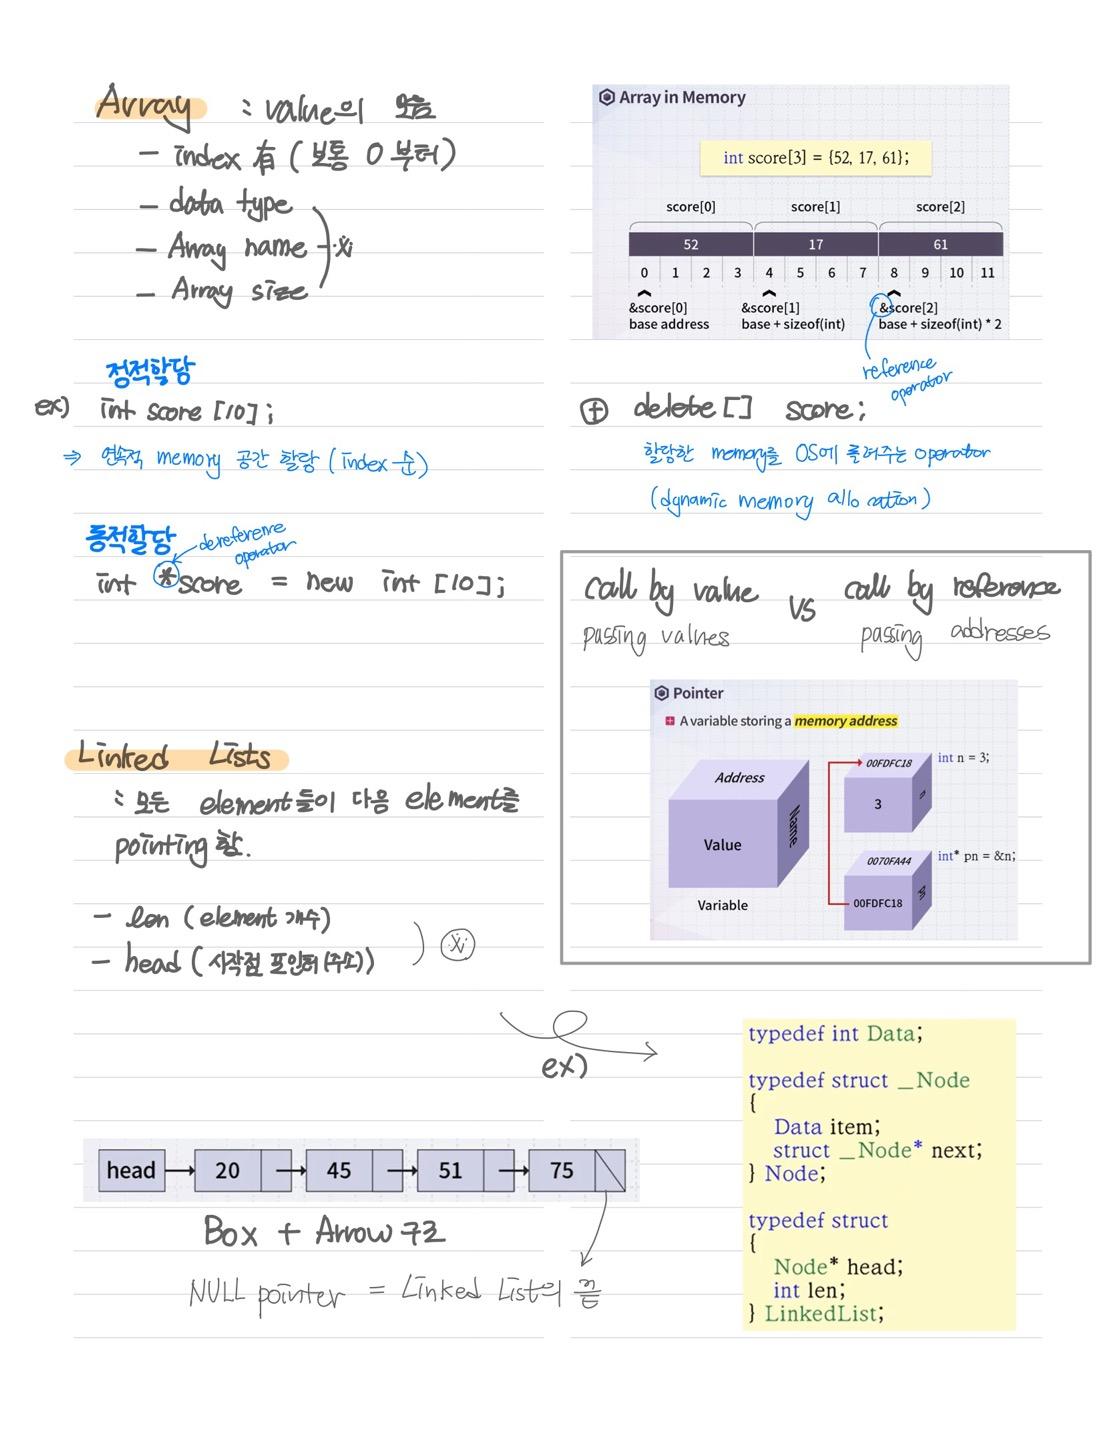 Array : value의 모음
- index 有 ( 보통 0 부터 )
- data type
- Array name
- Array size
정적할당
ex) int score [10] ;
⇒ 연속적 memory 공간 할당 ( index 순 )
동적할당
dereference operator
int *score = new int [10] ;
Array in Memory
int score[3] = {52, 17, 61};
score[0] score[1] score[2]
52 17 61
0 1 2 3 4 5 6 7 8 9 10 11
&score[0] &score[1] &score[2]
base address base + sizeof(int) base + sizeof(int) * 2
reference
operator
+ delete [] score ;
할당한 memory를 OS에 돌려주는 operator
( dynamic memory allocation )
call by value vs call by reference
passing values passing addresses
Pointer
A variable storing a memory address
Address
Value
Name
Variable
00FDFC18
3
n
int n = 3;
0070FA44
00FDFC18
int* pn = &n;
Linked Lists
: 모든 element들이 다음 element를
pointing 함.
- len ( element 개수)
- head ( 시작점 포인터 (주소))
ex)
head 20 45 51 75
Box + Arrow 구조
NULL pointer = Linked List의 끝
typedef int Data;
typedef struct _Node
{
Data item;
struct _Node* next;
} Node;
typedef struct
{
Node* head;
int len;
} LinkedList;